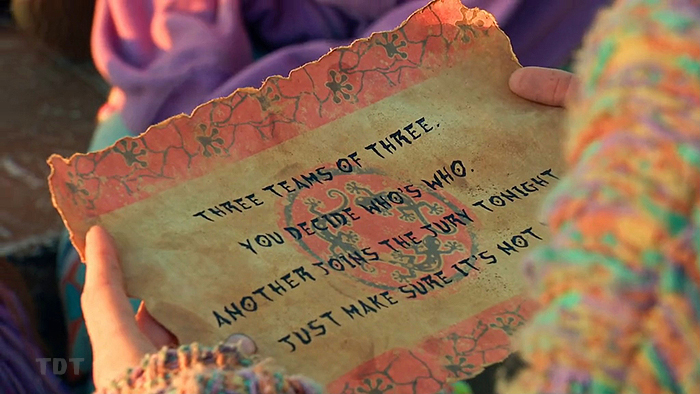 THREE TEAMS OF THREE.
YOU DECIDE WHO'S WHO.
ANOTHER JOINS THE JURY TONIGHT
JUST MAKE SURE IT'S NOT
TDT